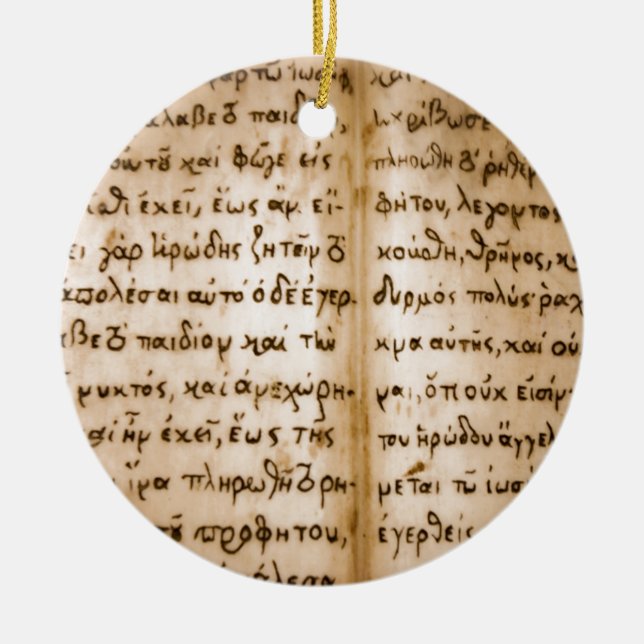 γαρ τῶ ϊωσὴφ
λαβε τὸ παιδί
αυτοῦ καὶ φεῦγε εἰς
ϊσθι ἐκεῖ, ἕως ἄν εἴ-
ει γὰρ ἡρώδης ζητεῖν τὸ
ἀπολέσαι αυτό ὁ δὲ ἐγερ-
αβε τὸ παιδίον καὶ τὴν
νυκτός, καὶ ἀνεχώρη-
αὶ ἦν ἐκεῖ, ἕως τῆς
ἵνα πληρωθῆ τὸ ρη-
τοῦ προφήτου,
άλεσα
καὶ
ηκρίβωσε
πληρώθη τὸ ρηθεν
φήτου, λέγοντος
κούσθη, θρῆνος, κα
δυρμὸς πολύς· ραχ
κνα αυτῆς, καὶ ου
ναι, ὅτι ουκ εισίν·
του ἡρώδου ἄγγελ
νεται τῶ ϊωσή
εγερθεὶς